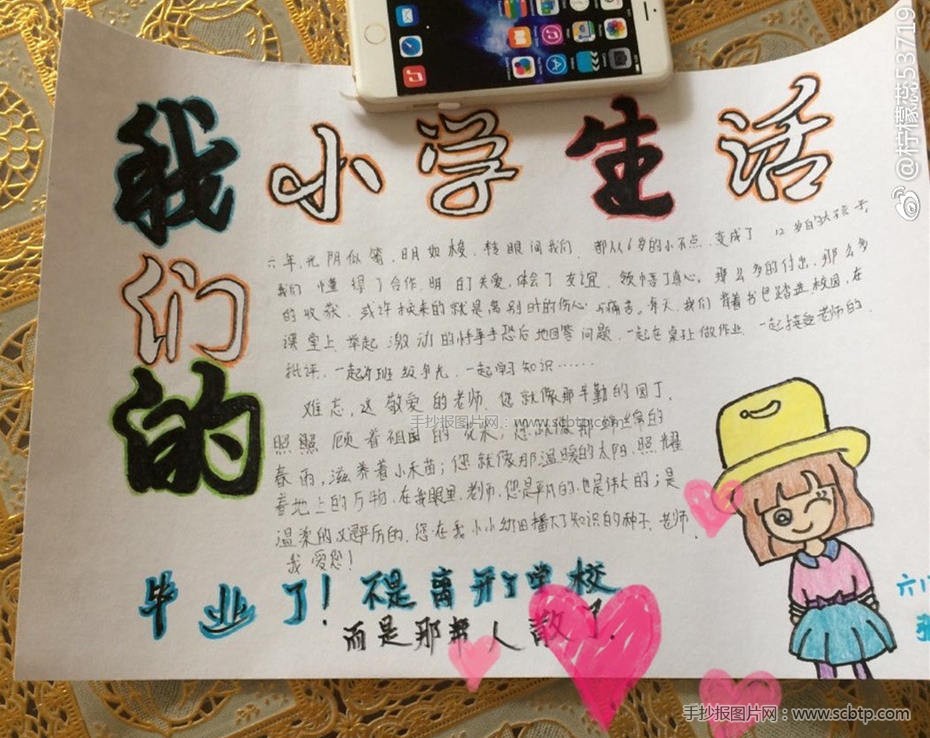 我 小 学 生 活
们
的
六年,光阴似箭,日月如梭,转眼间我们 都从6岁的小不点,变成了 12岁的大孩子,
我们 懂得了合作,明白了关爱,体会了友谊,领悟了真心。那么多的付出,那么多
的收获,或许换来的就是离别时的伤心与痛苦。每天,我们背着书包踏进校园,在
课堂上举起激动的 手 地回答问题,一起在桌上做作业,一起接受老师的
批评,一起为班级争光,一起学习知识……
难忘,这敬爱的老师,您就像那辛勤的园丁,
照照顾着祖国的花朵;您就像那 绵绵的
春雨,滋养着小禾苗;您就像那温暖的太阳,照耀
着地上的万物,在我眼里,老师,您是平凡的,也是伟大的;是
温柔的又严厉的,您在我小小幼田播下了知识的种子,老师,
我爱您!
毕业了!不是离开了学校
而是那帮人散了.
六
手抄报图片网:www.scbtp.com
手抄报图片网:www.scbtp.com